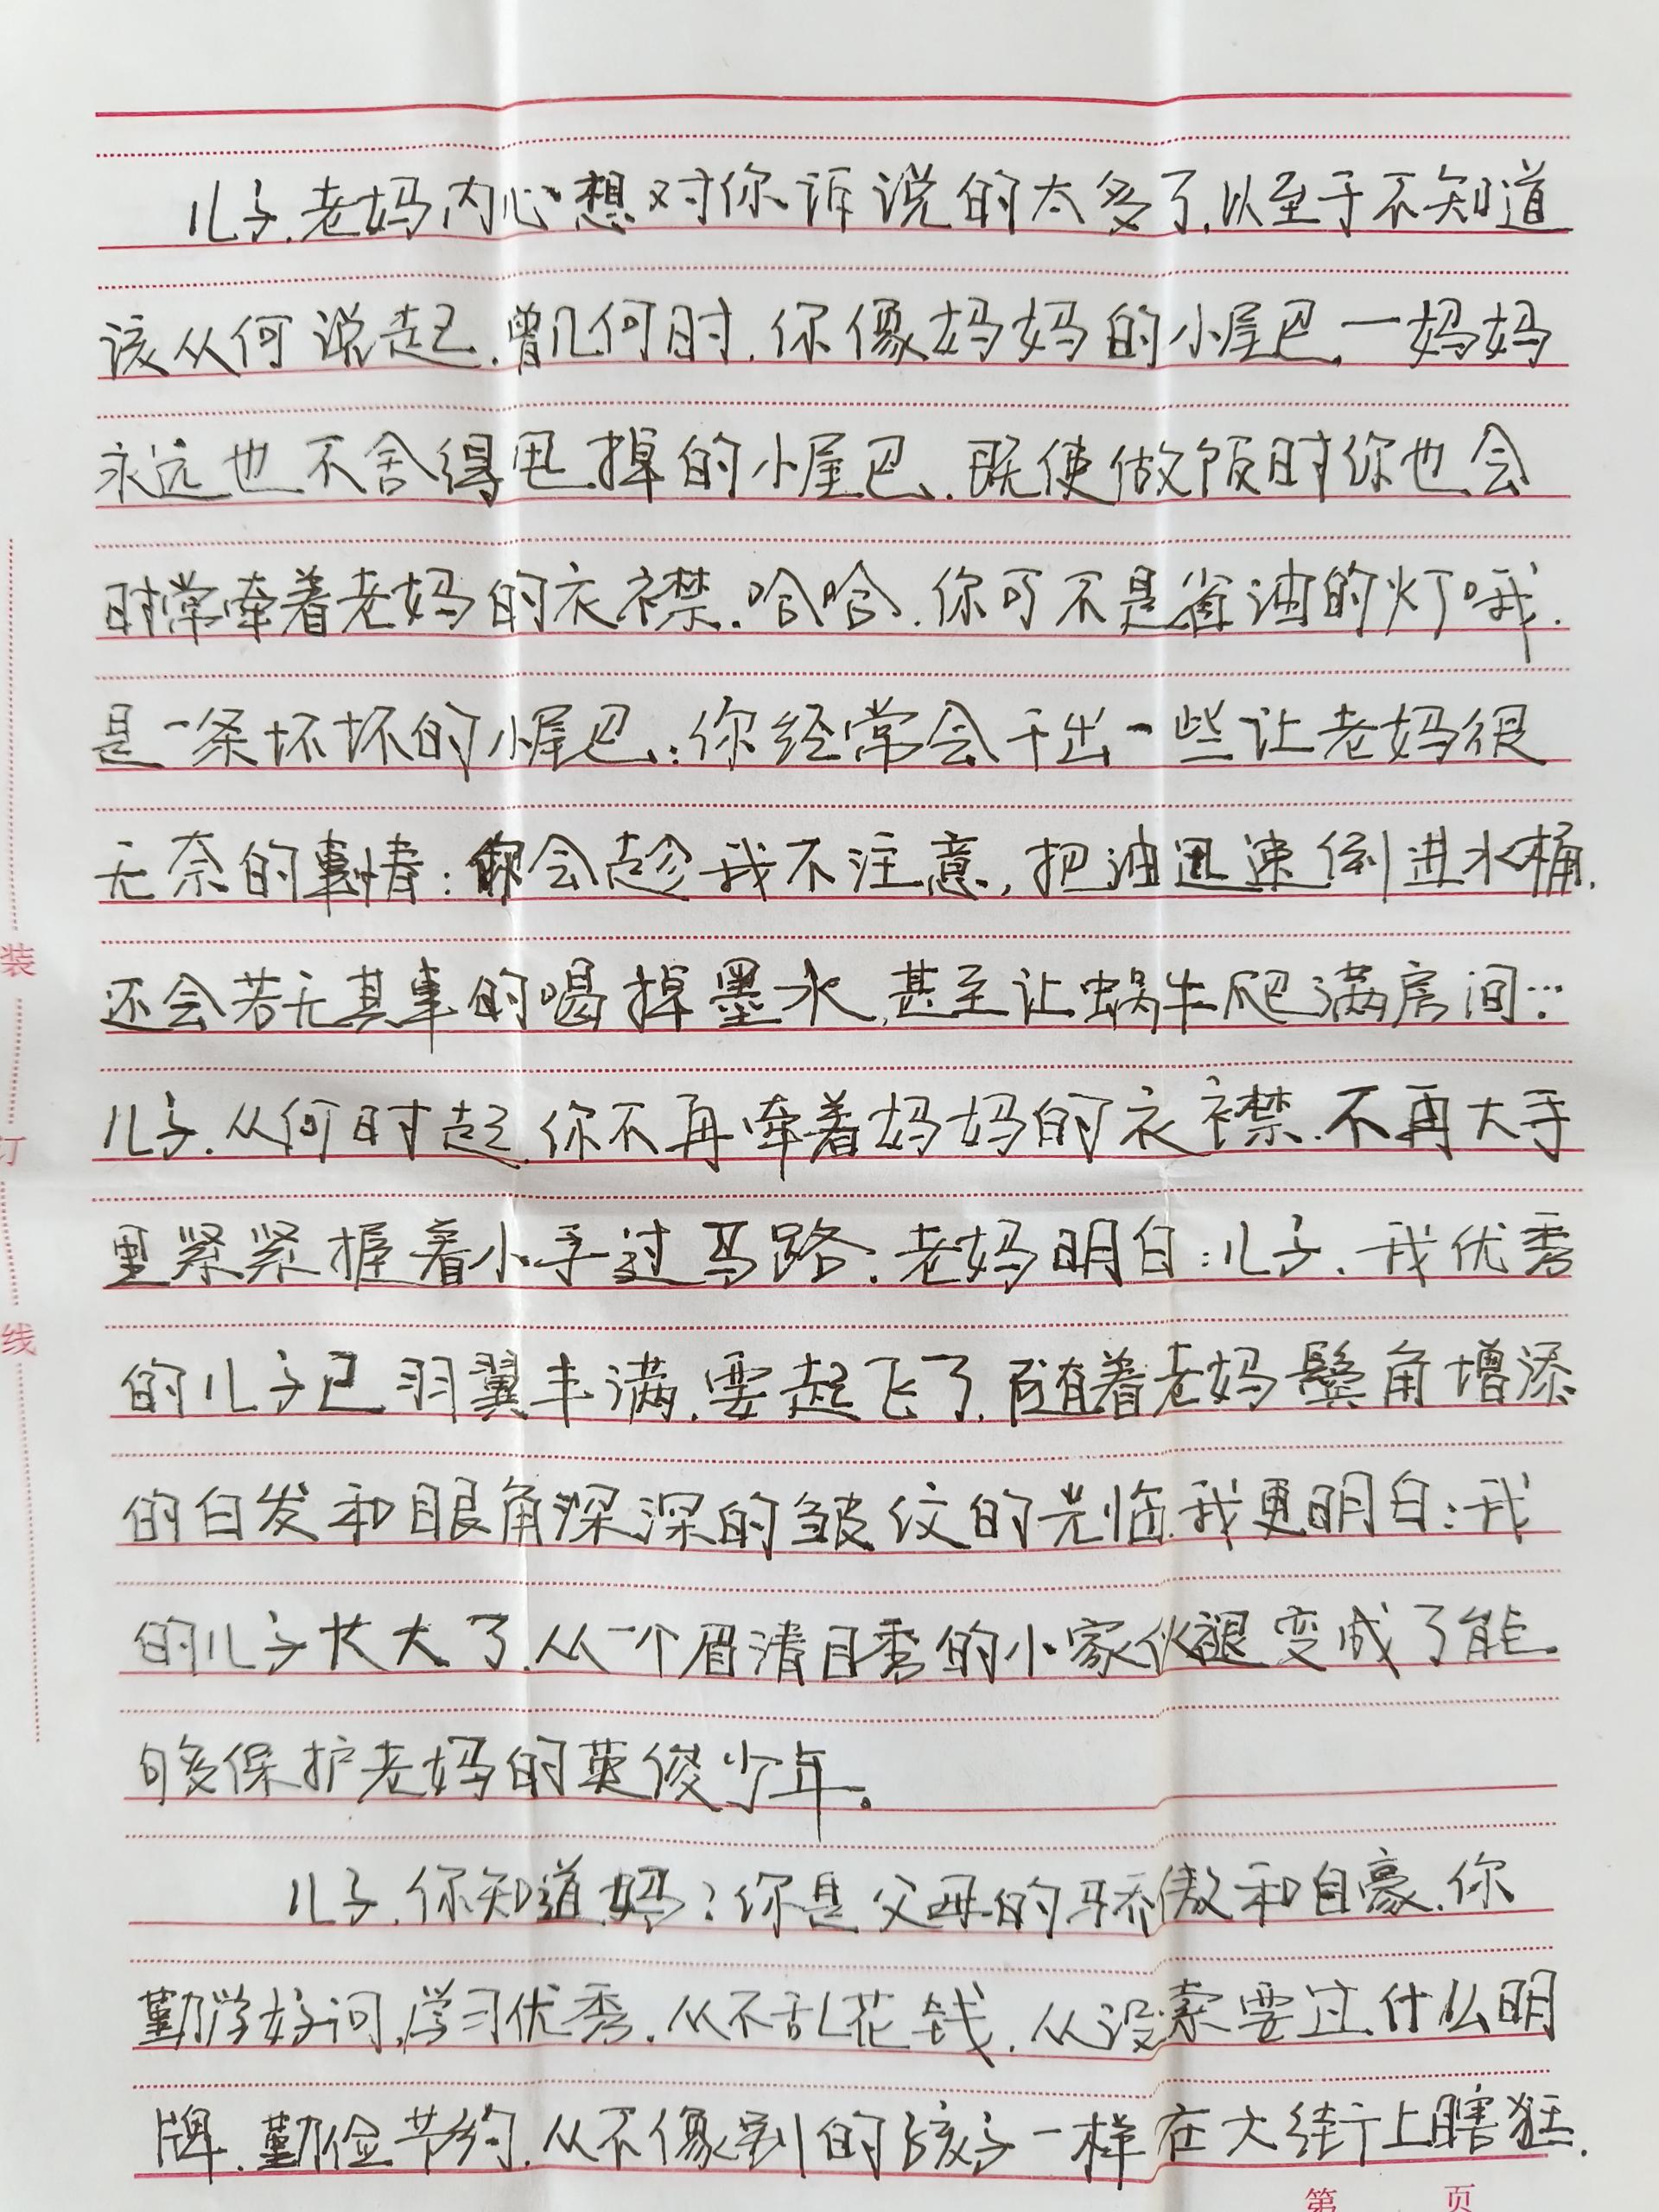 儿子.老妈内心想对你诉说的太多了.以至于不知道
该从何说起.曾几何时.你像妈妈的小尾巴.一妈妈
永远也不舍得甩掉的小尾巴.既使做饭时你也会
时常牵着老妈的衣襟.哈哈.你可不是省油的灯哦.
是一条坏坏的小尾巴.:你经常会干出一些让老妈很
无奈的事情:你会趁我不注意,把油迅速倒进水桶.
还会若无其事的喝掉墨水,甚至让蜗牛爬满房间…
儿子.从何时起.你不再牵着妈妈的衣襟.不再大手
里紧紧握着小手过马路.老妈明白:儿子.我优秀
的儿子已羽翼丰满.要起飞了.随着老妈鬓角增添
的白发和眼角深深的皱纹的光临.我更明白:我
的儿子长大了.从一个眉清目秀的小家伙褪变成了能
够保护老妈的英俊少年。
儿子.你知道妈?你是父母的骄傲和自豪.你
勤学好问,学习优秀.从不乱花钱.从没索要过什么明
牌.勤俭节约.从不像别的孩子一样在大街上瞎狂.
装
订
线
第 页